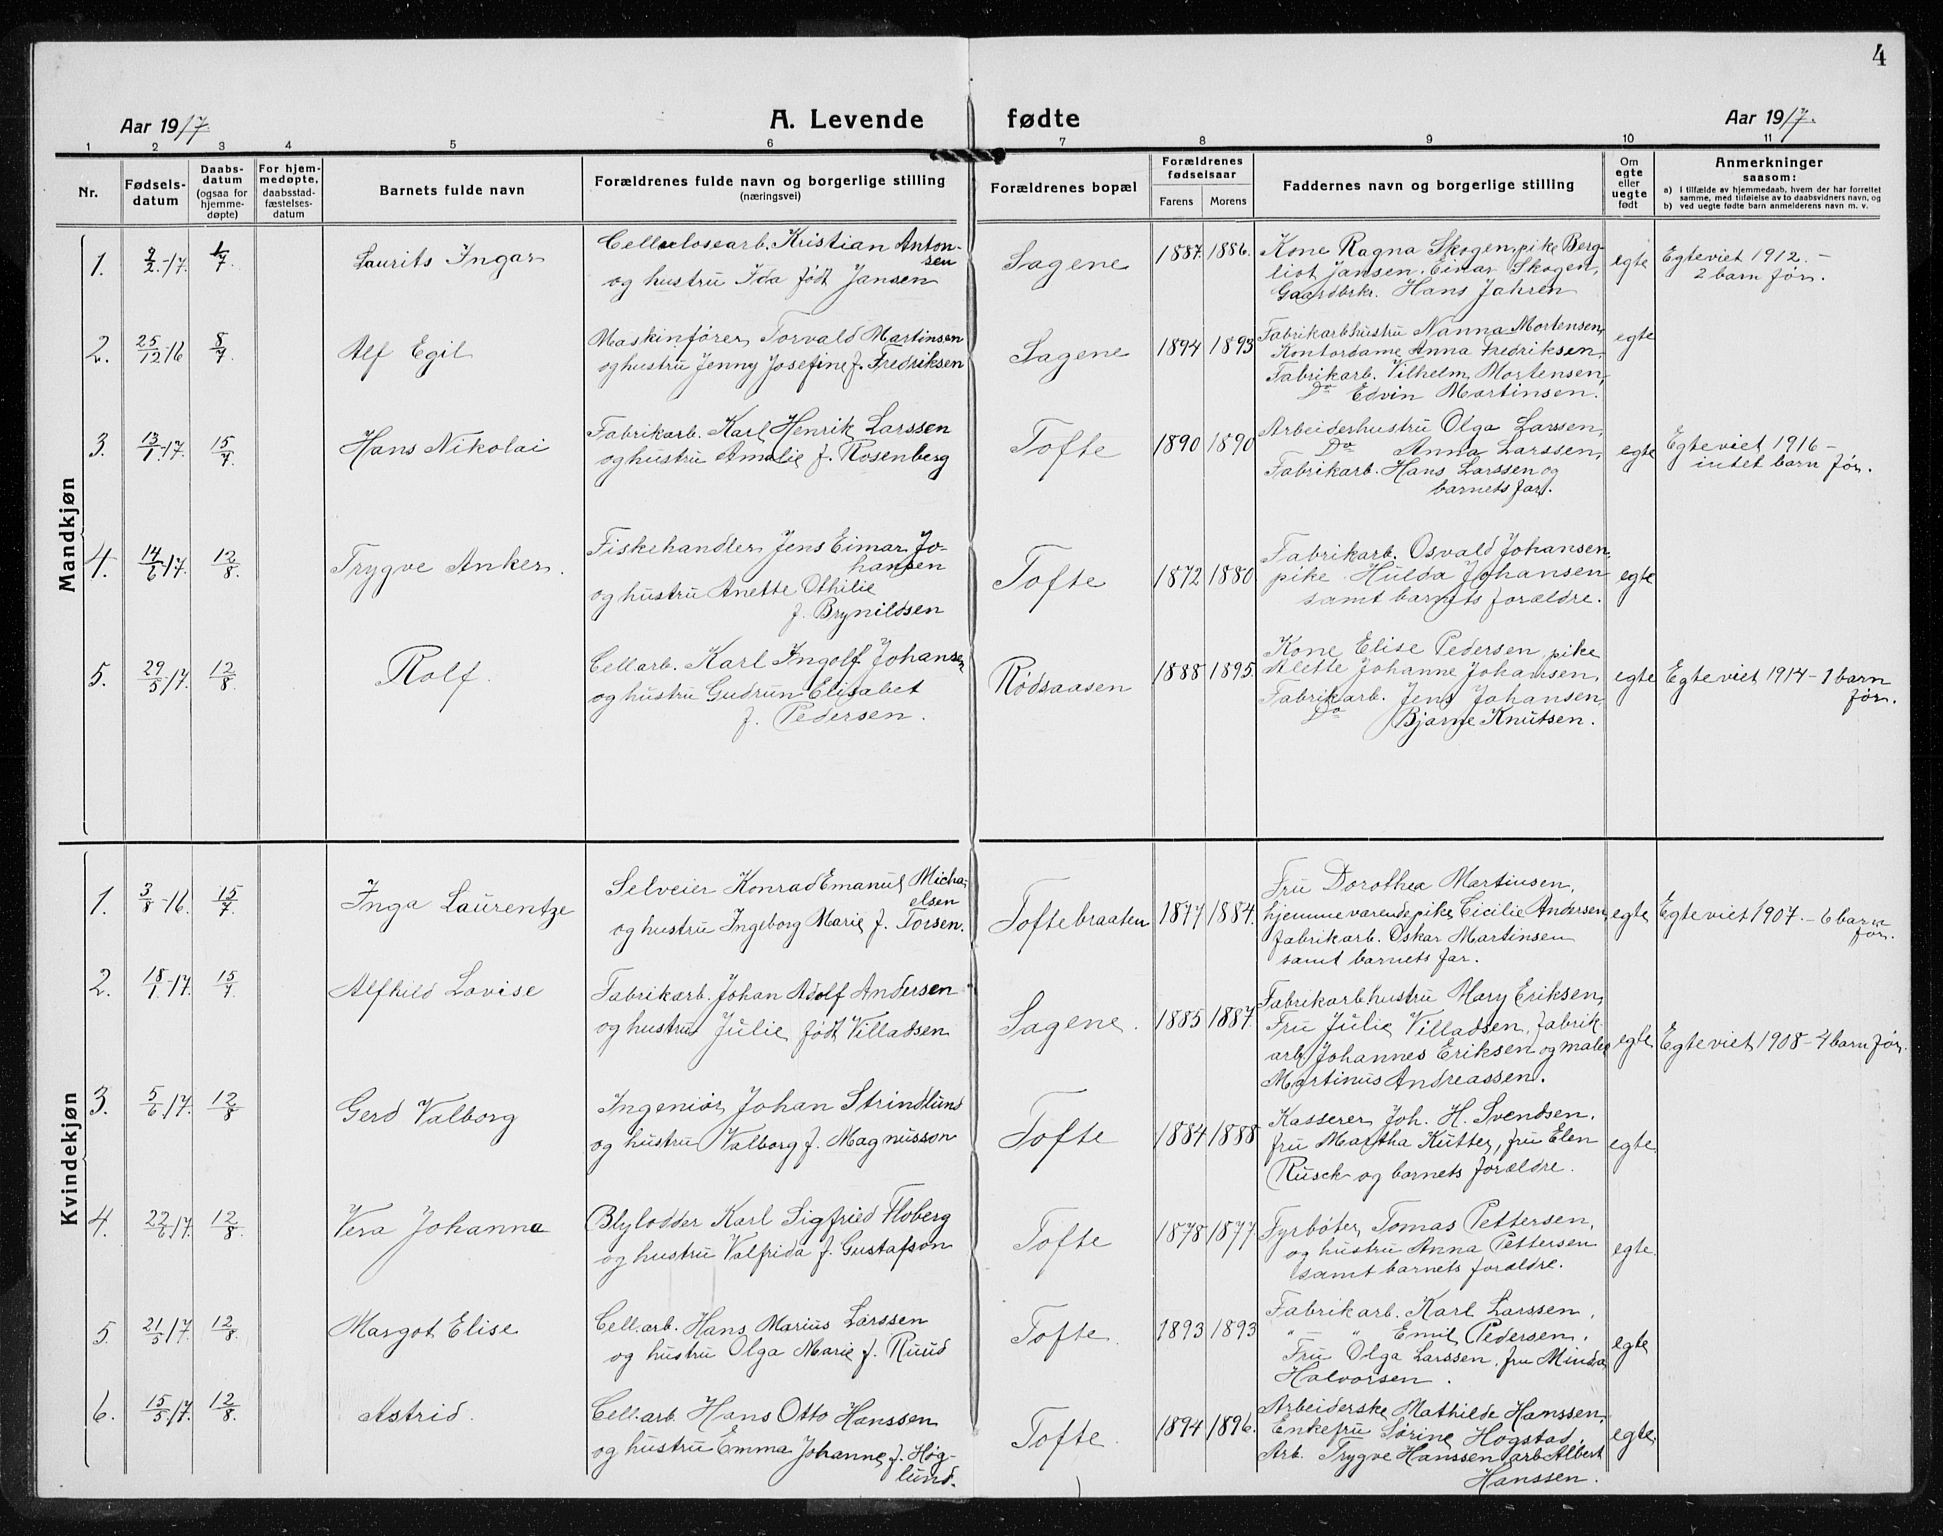 4
Aar 1917.
A. Levende fødte
Aar 1917.
1 2 3 4 5 6 7 8 9 10 11
Nr.
Fødsels-
datum
Daabs-
datum
(ogsaa for
hjemme-
døpte)
For hjem-
medøpte,
daabsstad-
fæstelses-
datum
Barnets fulde navn
Forældrenes fulde navn og borgerlige stilling
(næringsvei)
Forældrenes bopæl
Forældrenes
fødselsaar
Farens Morens
Faddernes navn og borgerlige stilling
Om
egte
eller
uegte
født
Anmerkninger
saasom:
a) I tilfælde av hjemmedaab, hvem der har forrettet
samme, med tilføielse av to daabsvidners navn, og
b) ved uegte fødte barn anmelderens navn m. v.
Mandkjøn
1. 9/2-17. 1/7. Laurits Ingar
Cellulosearb. Kristian Anton-
sen
og hustru Ida født Jansen
Sagene 1887. 1886.
Kone Ragna Skogen, pike Berg-
liot Jansen. Einar Skogen,
Gaardbrkr. Hans Jahren
egte
Egteviet 1912. -
2 barn før.
2. 25/12 16 8/7. Alf Egil
Maskinfører Torvald Martinsen
og hustru Jenny Josefine f. Fredriksen
Sagene 1894 1893
Fabrikarbhustru Nanna Mortensen,
Kontordame Anna Fredriksen,
Fabrikarb. Vilhelm Mortensen,
Do Edvin Martinsen.
egte
3. 13/1-17. 15/7 Hans Nikolai
Fabrikarb. Karl Henrik Larssen
og hustru Amalie f. Rosenberg
Tofte 1890 1890
Arbeiderhustru Olga Larssen,
Do Anna Larssen,
Fabrikarb. Hans Larssen og
barnets far.
egte
Egteviet 1916 -
intet barn før.
4. 14/6 17. 12/8. Trygve Anker.
Fiskehandler Jens Einar Jo-
hansen
og hustru Anette Othilie
f. Brynildsen
Tofte 1872 1880
Fabrikarb. Osvald Johansen,
pike Hulda Johansen
samt barnets forældre.
egte
5. 29/5 17. 12/8 Rolf.
Cellarb. Karl Ingolf Johansen
og hustru Gudrun Elisabet
f. Pedersen.
Rødsaasen 1888 1895.
Kone Elise Pedersen, pike
Alette Johanne Johansen,
Fabrikarb. Jens Johansen,
Do Bjarne Knutsen.
egte
Egteviet 1914 - 1 barn
før.
Kvindekjøn
1. 3/8-16. 15/7 Inga Laurentze
Selveier Konrad Emanuel Micha-
elsen
og hustru Ingeborg Marie f. Torsen.
Toftebraaten 1877 1884.
Fru Dorothea Martinsen,
hjemmeværende pike Cicilie Andersen,
fabrikarb. Oskar Martinsen
samt barnets far.
egte
Egteviet 1907. - 6 barn
før.
2. 18/1 17. 15/7 Alfhild Lovise
Fabrikarb. Johan Adolf Andersen
og hustru Julie født Villadsen
Sagene. 1885 1887.
Fabrikarbhustru Mary Eriksen,
Fru Julie Villadsen, fabrik-
arb. Johannes Eriksen og maler
Martinus Andreassen.
egte
Egteviet 1908 - 4 barn før.
3. 5/6 17. 12/8 Gerd Valborg
Ingeniør Johan Strindlund
og hustru Valborg f. Magnusson
Tofte 1884 1888
Kasserer Joh. H. Svendsen.
fru Martha Kutter, fru Elen
Rusck og barnets forældre.
egte.
4. 22/6 17. 12/8. Vera Johanna
Blylodder Karl Sigfried Floberg
og hustru Valfrida f. Gustafson
Tofte 1878 1877.
Fyrbøter Tomas Pettersen,
og hustru Anna Pettersen
samt barnets forældre.
egte.
5. 21/5 17. 12/8. Margot Elise
Cell.arb. Hans Marius Larssen
og hustru Olga Marie f. Ruud
Tofte. 1893 1893
Fabrikarb. Karl Larssen,
" " Emil Pedersen.
Fru Olga Larssen, fru Minda
Halvorsen.
egte
6. 15/5 17. 12/8. Astrid.
Cell.arb. Hans Otto Hanssen
og hustru Emma Johanne f. Høg-
lund.
Tofte. 1894 1896.
Arbeiderske Mathilde Hanssen,
Enkefru Sørine Hogstad,
Arb. Trygve Hanssen arb Albert
Hanssen.
egte.